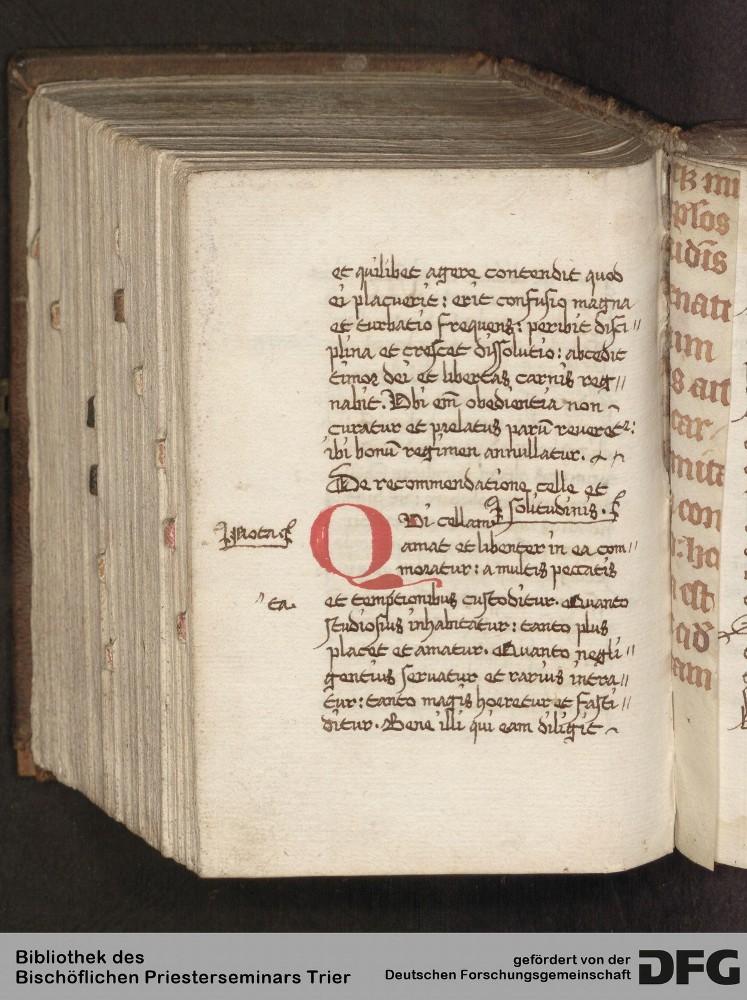 et quilibet agere contendit quod
ei placuerit: erit confusio magna
et turbatio frequens: peribit disci〃
plina et crescet dissolutio: abcedit
timor dei et libertas carnis reg〃
nabit. Ubi em̄ obedientia non ~
curatur et praelatus parū reueretᷣ:
ibi bonū regimen annullatur.
De recommendatione celle et
solitudinis.
QUi cellam
Nota
amat et libenter in ea com〃
moratur: a multis peccatis
〃ta.
et temptionibus custoditur. Quanto
studiosius inhabitatur: tanto plus
placet et amatur. Quanto negli〃
gentius seruatur et rarius intra〃
tur: tanto magis horretur et fasti〃
ditur. Bene illi qui eam diligit ~
mi
plos
udīs
natt
um
s art
car
mita
con
: ho
est
am
Bibliothek des
Bischöflichen Priesterseminars Trier
gefördert von der
Deutschen Forschungsgemeinschaft
DFG